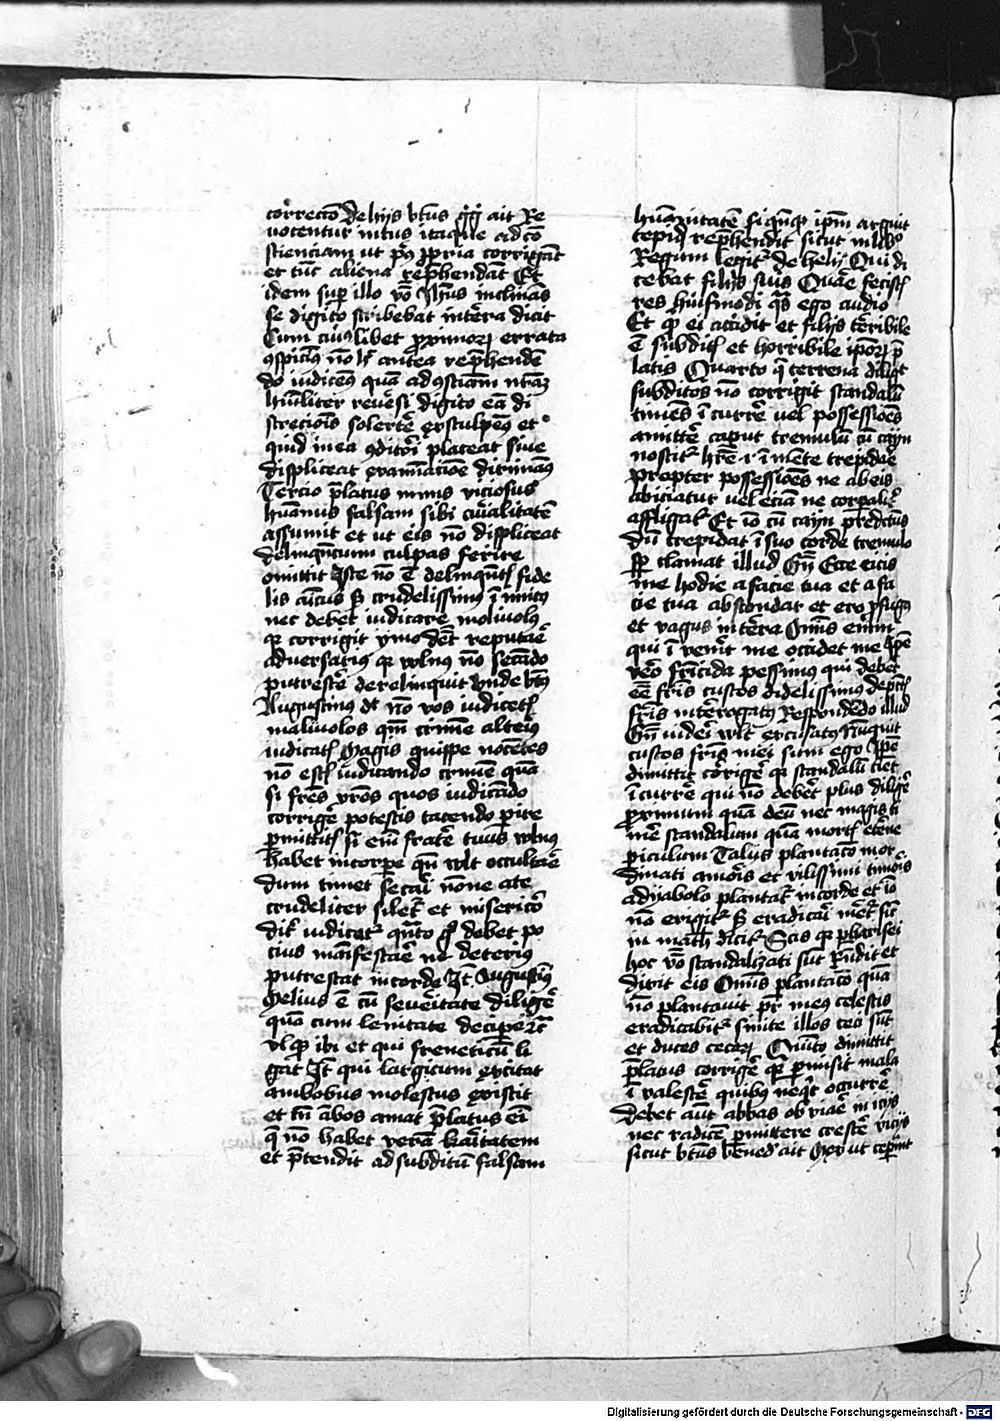 correcco͞ De hijs bt͞us gͥgͥ ait Re
uocentur intus itaque ad co͞
scienciam ut pͥ9 ꝓpria corrigāt
et tūc aliena rep̄hendāt Et
idem suꝑ illo vō Jh̄us inclinās
se digito scribebat in terra dicit
Cum cui9libet ꝓximoꝝ errata
ꝯspicim9 nō hͦ antea rep̄henden̄
do iudicem9 quā ad ꝯsciam nr̄am
hūiliter reuersi digito eā di
screcionis solerter exsculpem9 et
quid in ea ꝯditori placeat siue
displiceat exaīacione dirimam9
Tercio p̄latus nimis viciosus
hūanus falsam sibi cūialitatē
assumit et ut eis nō displiceat
delinquēcium culpas ferire
omittit Iste nō ē delinquētꝭ fide
lis amicus sꝫ crudelissim9 īimic9
nec debet iudicare moliuol9
qꝫ corrigit ymo dēt reputare
aduersari9 qꝫ vuln9 nō secādo
putrescere derelinquit Vnde bt͞us
Augustinus dt nō vos iudicetꝭ
maliuolos qm̄ crimē alteri9
iudicatꝭ Magis quippe nocētes
nō estꝭ iudicando crimē quā
si frēs vr̄os quos iudicādo
corrigē potestis tacendo ꝑire
ꝑmittitꝭ si em̄ frater tuus vuln9
habet in corpe qd vult occultare
dum timet secari nōne a te
crudeliter siletur et misericor
diter iudicatur quāto gͦ debet po
cius māifestare ne deteri9
putrescat in corde It Augustin9
Melius ē cū seueritate diligere
quā cum lenitate deciperet
vlqꝫ ibi et qui freneticū li
gat Et qui largicum excitat
ambobus molestus existit
et tn̄ ābos amat p̄latus em̄
qͥ nō habet verā kaitatem
et p̄tendit ad subditū falsam
hūanitatē si qnqꝫ ip̄m arguit
tepide rep̄hendit sicut in libro
Regum legitur de helij Qui di
cebat filijs suis Quare fecist
res huiusmodi qͣs ego audio
Et qꝫ ei accidit et filijs terribile
ē subditꝭ et horribile ip̄oꝝ p̄
latis Quarto qͥ terrena diligit
subditos nō corrigit scandalū
timēs īcurrē uel possessiōes
amittē caput tremulū cū cayn
noscitur hr̄e .i. ī mēte trepidare
propter possessiōes ne ab eis
abiciatur uel eciā ne corꝑalit
affligatur Et iō cū cayn predictus
dū trepidat ī suo corde tremulo
sꝑ clamat illud Gn̄ Ecce eicis
me hodie a facie tua et a fa
cie tua abscondar et ero ꝓfug9
et vagus in terra Om̄is enim
qui īvenit me occidet me Ipe
vero fr̄icida pessimus qui debet
eē fr̄is custos fidelissimus de pctꝭ
fr̄is interogatus Respondendo illud
Gn̄ videri vult excusatus Nunquit
custos fr̄is mei sum ego Ipe
dimittit corrigē qꝫ scandalū timet
īcurrē qui nō debet plus diligē
ꝓximum quā deū nec magis ti
mē scandalum quā mortꝭ eterne
ꝑiculum Talis plantacō inor
dinati amoris et vilissimi timoris
a dyabolo plantatur in corde et iō
nō erigitur sꝫ eradicari metur sic
in math dicitur Scis qꝫ pharisei
hoc vō scandalizati sūt Rn̄dit et
dixit eis Om̄is plantacō quā
nō plantauit pr̄ meus celestis
eradicabitur sinite illos ceci sūt
et duces cecoꝝ Quīto dimittit
p̄latus corrigē qꝫ ꝑmisit mala
īvalescē quibus neqt occurrē
Debet aut abbas obviare iniciis
nec radicē ꝑmittere crescē vicijs
sicut bt͞us bened9 ait Mox ut ceperint
Digitalisierung gefördert durch die Deutsche Forschungsgemeinschaft - DFG